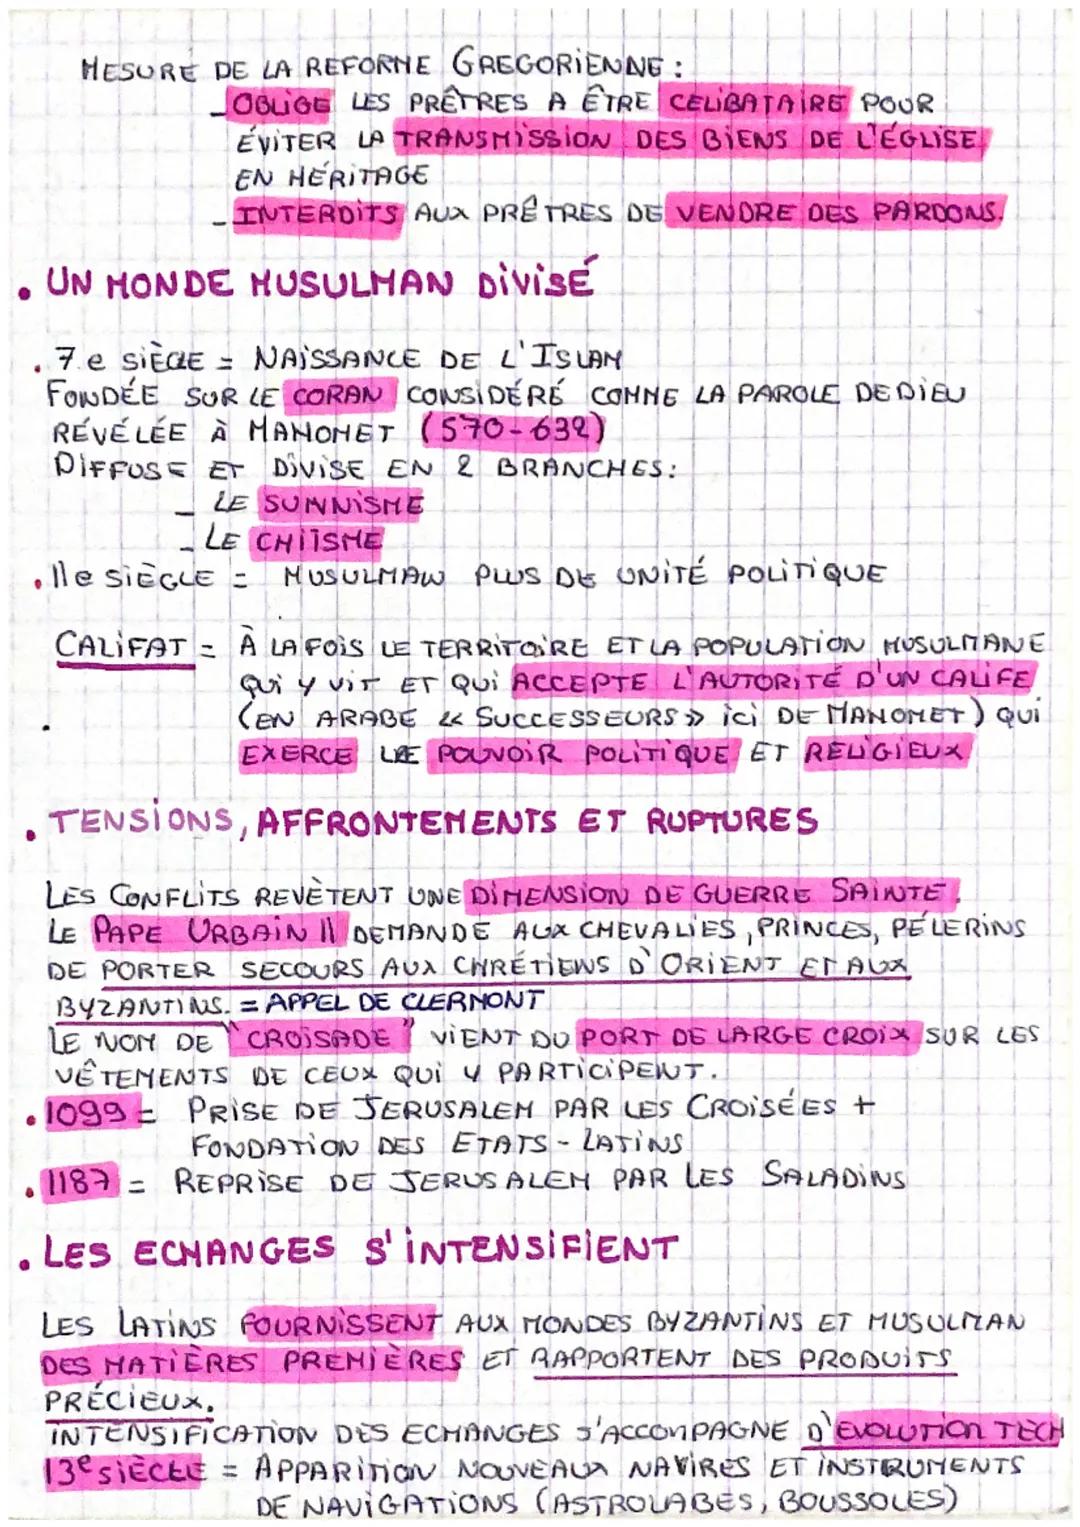 MESURE DE LA REFORME GREGORIENNE :
- OBLIGE LES PRÊTRES A ÊTRE CELIBATAIRE POUR
ÉVITER LA TRANSMISSION DES BIENS DE L'ÉGLISE
EN HÉRITAGE
- INTERDITS AUX PRÊTRES DE VENDRE DES PARDONS.
• UN MONDE MUSULMAN DIVISÉ
• 7e SIÈCLE = NAISSANCE DE L'ISLAM
FONDÉE SUR LE CORAN CONSIDÉRÉ COMME LA PAROLE DE DIEU
RÉVÉLÉE À MAHOMET (570-632)
DIFFUSE ET DIVISE EN 2 BRANCHES:
- LE SUNNISME
- LE CHIISME
• 11e SIÈCLE = MUSULMAN PLUS DE UNITÉ POLITIQUE
CALIFAT = À LA FOIS LE TERRITOIRE ET LA POPULATION MUSULMANE
QUI Y VIT ET QUI ACCEPTE L'AUTORITÉ D'UN CALIFE
(EN ARABE « SUCCESSEURS » ICI DE MAHOMET) QUI
EXERCE LE POUVOIR POLITIQUE ET RELIGIEUX
• TENSIONS, AFFRONTEMENTS ET RUPTURES
LES CONFLITS REVÈTENT UNE DIMENSION DE GUERRE SAINTE.
LE PAPE URBAIN II DEMANDE AUX CHEVALIES, PRINCES, PÉLERINS
DE PORTER SECOURS AUX CHRÉTIENS D'ORIENT ET AUX
BYZANTINS. = APPEL DE CLERMONT
LE NOM DE "CROISADE" VIENT DU PORT DE LARGE CROIX SUR LES
VÊTEMENTS DE CEUX QUI Y PARTICIPENT.
• 1099 = PRISE DE JERUSALEM PAR LES CROISÉES +
FONDATION DES ETATS-LATINS
• 1187 = REPRISE DE JERUSALEM PAR LES SALADINS
• LES ECHANGES S'INTENSIFIENT
LES LATINS FOURNISSENT AUX MONDES BYZANTINS ET MUSULMAN
DES MATIÈRES PREMIÈRES ET RAPPORTENT DES PRODUITS
PRÉCIEUX.
INTENSIFICATION DES ECHANGES S'ACCOMPAGNE D'EVOLUTION TECH
13e SIÈCLE = APPARITION NOUVEAUX NAVIRES ET INSTRUMENTS
DE NAVIGATIONS (ASTROLABES, BOUSSOLES)